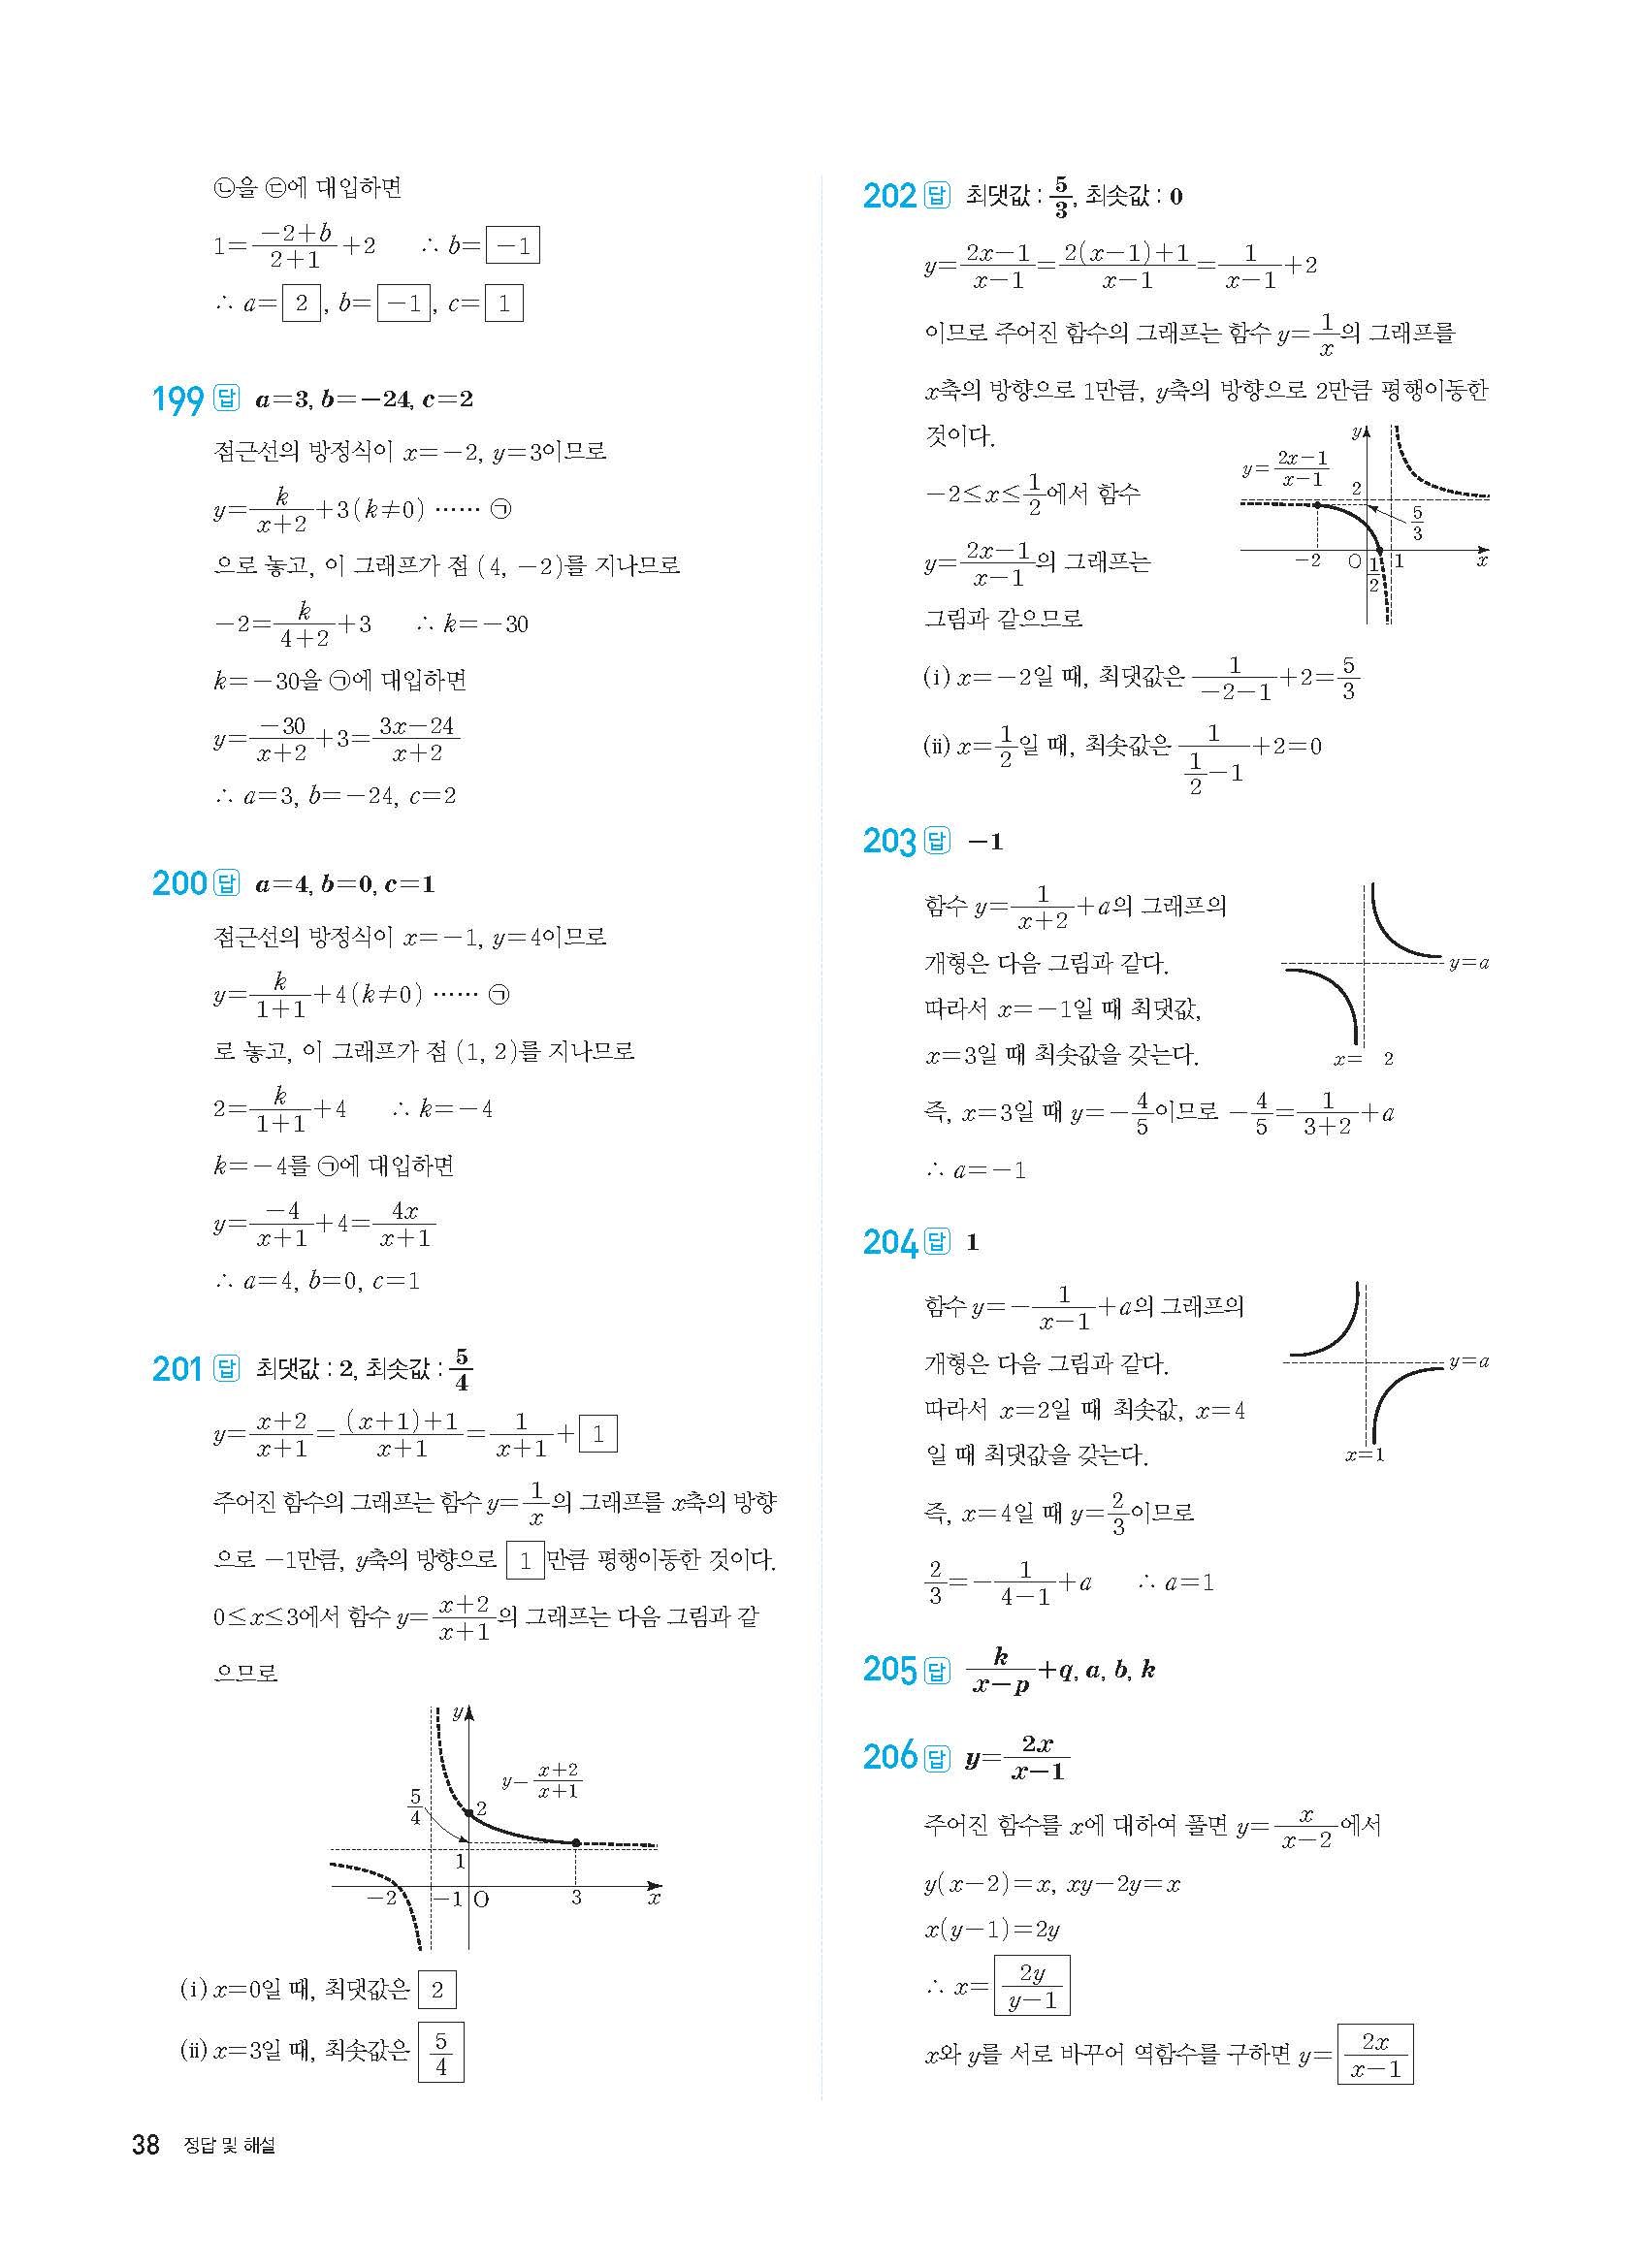 ㉡을 ㉢에 대입하면
1=\frac{-2+b}{2+1}+2 ∴ b=-1
∴ a=2, b=-1, c=1
199 답 a=3, b=-24, c=2
점근선의 방정식이 x=-2, y=3이므로
y=\frac{k}{x+2}+3(k≠0) …… ㉠
으로 놓고, 이 그래프가 점 (4, -2)를 지나므로
-2=\frac{k}{4+2}+3 ∴ k=-30
k=-30을 ㉠에 대입하면
y=\frac{-30}{x+2}+3=\frac{3x-24}{x+2}
∴ a=3, b=-24, c=2
200 답 a=4, b=0, c=1
점근선의 방정식이 x=-1, y=4이므로
y=\frac{k}{1+1}+4(k≠0) …… ㉠
로 놓고, 이 그래프가 점 (1, 2)를 지나므로
2=\frac{k}{1+1}+4 ∴ k=-4
k=-4를 ㉠에 대입하면
y=\frac{-4}{x+1}+4=\frac{4x}{x+1}
∴ a=4, b=0, c=1
201 답 최댓값 : 2, 최솟값 : \frac{5}{4}
y=\frac{x+2}{x+1}=\frac{(x+1)+1}{x+1}=\frac{1}{x+1}+1
주어진 함수의 그래프는 함수 y=\frac{1}{x}의 그래프를 x축의 방향
으로 -1만큼, y축의 방향으로 1만큼 평행이동한 것이다.
0≤x≤3에서 함수 y=\frac{x+2}{x+1}의 그래프는 다음 그림과 같
으므로
y
y-\frac{x+2}{x+1}
\frac{5}{4}
2
1
-2 -1 O 3 x
(ⅰ) x=0일 때, 최댓값은 2
(ⅱ) x=3일 때, 최솟값은 \frac{5}{4}
202 답 최댓값 : \frac{5}{3}, 최솟값 : 0
y=\frac{2x-1}{x-1}=\frac{2(x-1)+1}{x-1}=\frac{1}{x-1}+2
이므로 주어진 함수의 그래프는 함수 y=\frac{1}{x}의 그래프를
x축의 방향으로 1만큼, y축의 방향으로 2만큼 평행이동한
것이다.
-2≤x≤\frac{1}{2}에서 함수
y=\frac{2x-1}{x-1}의 그래프는
그림과 같으므로
y
y=\frac{2x-1}{x-1}
2
\frac{5}{3}
-2 O \frac{1}{2} 1 x
(ⅰ) x=-2일 때, 최댓값은 \frac{1}{-2-1}+2=\frac{5}{3}
(ⅱ) x=\frac{1}{2}일 때, 최솟값은 \frac{1}{\frac{1}{2}-1}+2=0
203 답 -1
함수 y=\frac{1}{x+2}+a의 그래프의
개형은 다음 그림과 같다.
따라서 x=-1일 때 최댓값,
x=3일 때 최솟값을 갖는다.
y=a
x= 2
즉, x=3일 때 y=-\frac{4}{5}이므로 -\frac{4}{5}=\frac{1}{3+2}+a
∴ a=-1
204 답 1
함수 y=-\frac{1}{x-1}+a의 그래프의
개형은 다음 그림과 같다.
따라서 x=2일 때 최솟값, x=4
일 때 최댓값을 갖는다.
y=a
x=1
즉, x=4일 때 y=\frac{2}{3}이므로
\frac{2}{3}=-\frac{1}{4-1}+a ∴ a=1
205 답 \frac{k}{x-p}+q, a, b, k
206 답 y=\frac{2x}{x-1}
주어진 함수를 x에 대하여 풀면 y=\frac{x}{x-2}에서
y(x-2)=x, xy-2y=x
x(y-1)=2y
∴ x=\frac{2y}{y-1}
x와 y를 서로 바꾸어 역함수를 구하면 y=\frac{2x}{x-1}
38 정답 및 해설